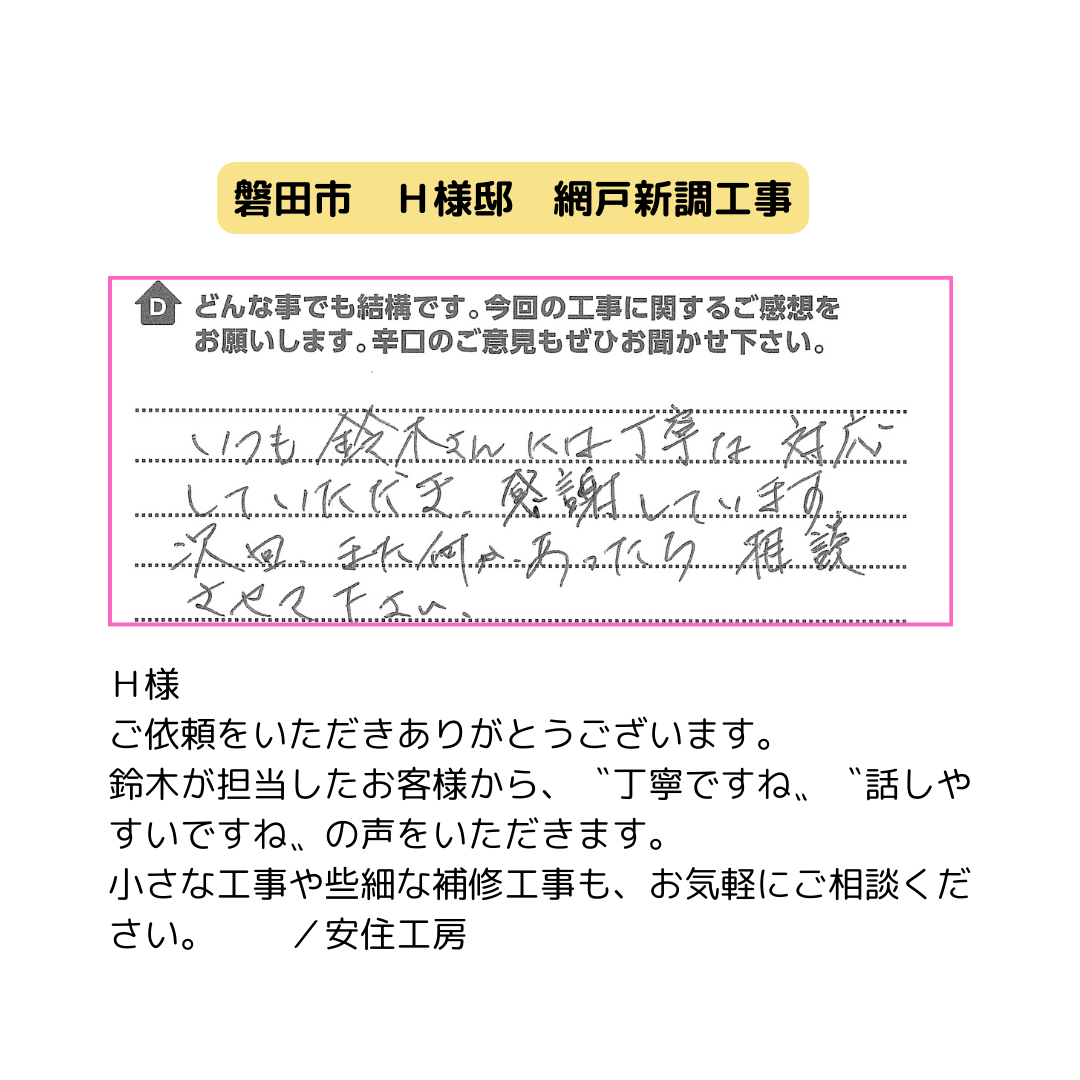 磐田市　H様邸　網戸新調工事
D
どんな事でも結構です。今回の工事に関するご感想を
お願いします。辛口のご意見もぜひお聞かせ下さい。
いつも鈴木さんには丁寧な対応
していただき、感謝しています。
次回、また何か、あったら相談
させて下さい、
H様
ご依頼をいただきありがとうございます。
鈴木が担当したお客様から、〝丁寧ですね〟〝話しや
すいですね〟の声をいただきます。
小さな工事や些細な補修工事も、お気軽にご相談くだ
さい。　　／安住工房